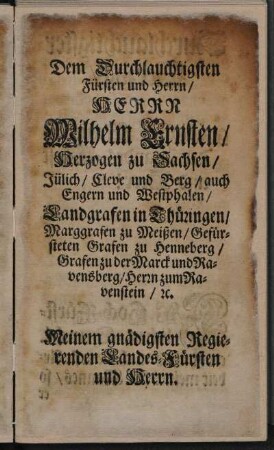 Dem Durchlauchtigsten
Fürsten und Herrn/
HERRN
Wilhelm Ernsten/
Herzogen zu Sachsen/
Jülich/ Cleve und Berg/ auch
Engern und Westphalen/
Landgrafen in Thüringen/
Marggrafen zu Meißen/ Gefür-
steten Grafen zu Henneberg/
Grafen zu der Marck und Ra-
vensberg/ Herrn zum Ra-
venstein/ ꝛc.
Meinem gnädigsten Regie-
renden Landes-Fürsten
und Herrn.